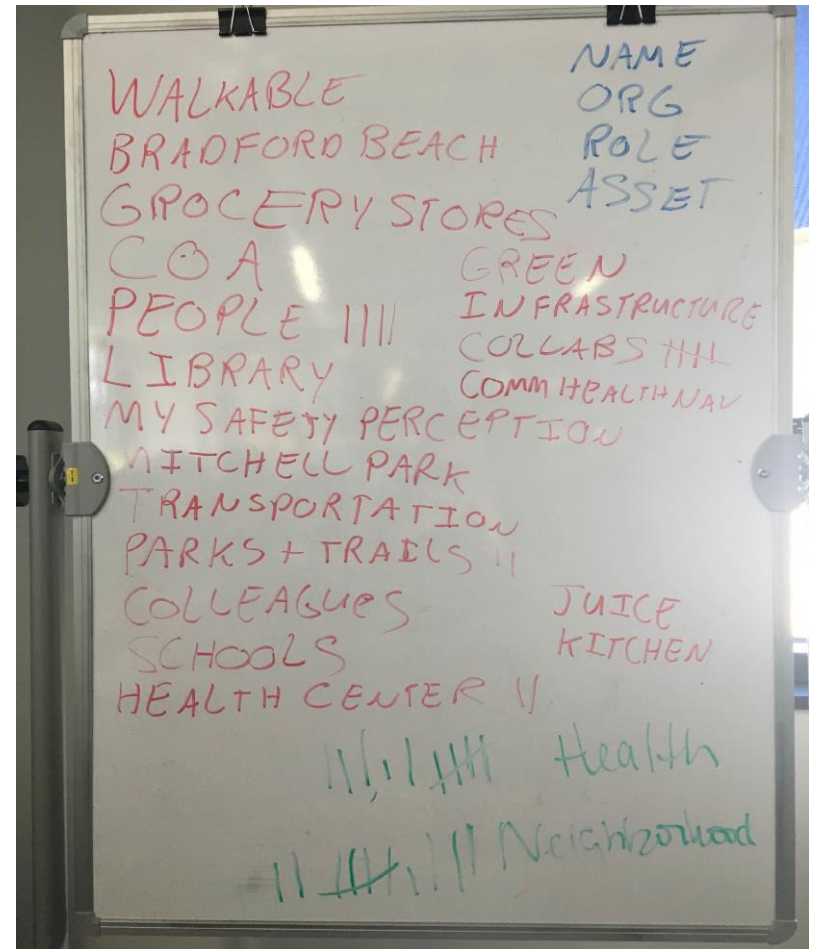 NAME
ORG
ROLE
ASSET
WALKABLE
BRADFORD BEACH
GROCERY STORES
COA
PEOPLE ||||
LIBRARY
MY SAFETY PERCEPTION
MITCHELL PARK
TRANSPORTATION
PARKS + TRAILS ||
COLLEAGUES
SCHOOLS
HEALTH CENTER ||
GREEN
INFRASTRUCTURE
COLLABS
COMM HEALTH NAV
JUICE
KITCHEN
Health
Neighborhood